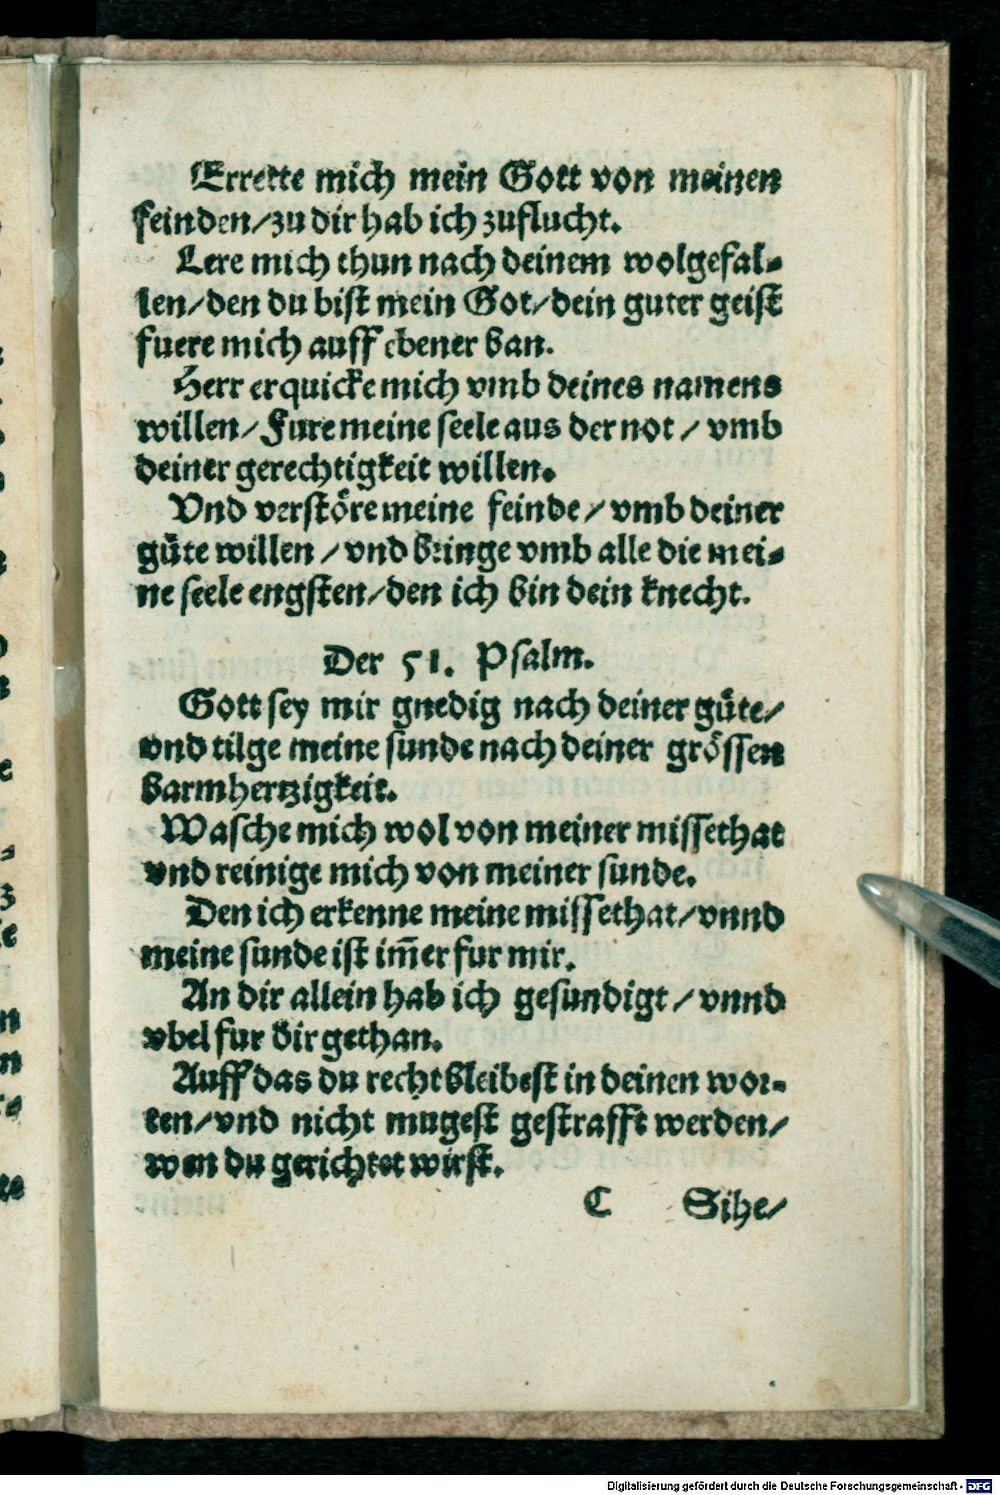 Errette mich mein Gott von meinen
feinden/zu dir hab ich zuflucht.
Lere mich thun nach deinem wolgefal⸗
len/den du bist mein Got/dein guter geist
fuere mich auff ebener ban.
Herr erquicke mich vmb deines namens
willen/Fure meine seele aus der not/vmb
deiner gerechtigkeit willen.
Vnd verstöre meine feinde/vmb deiner
gůte willen/vnd bringe vmb alle die mei⸗
ne seele engsten/den ich bin dein knecht.
Der 51. Psalm.
Gott sey mir gnedig nach deiner gůte/
vnd tilge meine sunde nach deiner grössen
barmhertzigkeit.
Wasche mich wol von meiner missethat
vnd reinige mich von meiner sunde.
Den ich erkenne meine missethat/vnnd
meine sunde ist im̄er fur mir.
An dir allein hab ich gesundigt/vnnd
vbel fur dir gethan.
Auff das du recht bleibest in deinen wor⸗
ten/vnd nicht mugest gestrafft werden/
wan du gerichtet wirst.
C Sihe/
Digitalisierung gefördert durch die Deutsche Forschungsgemeinschaft - DFG